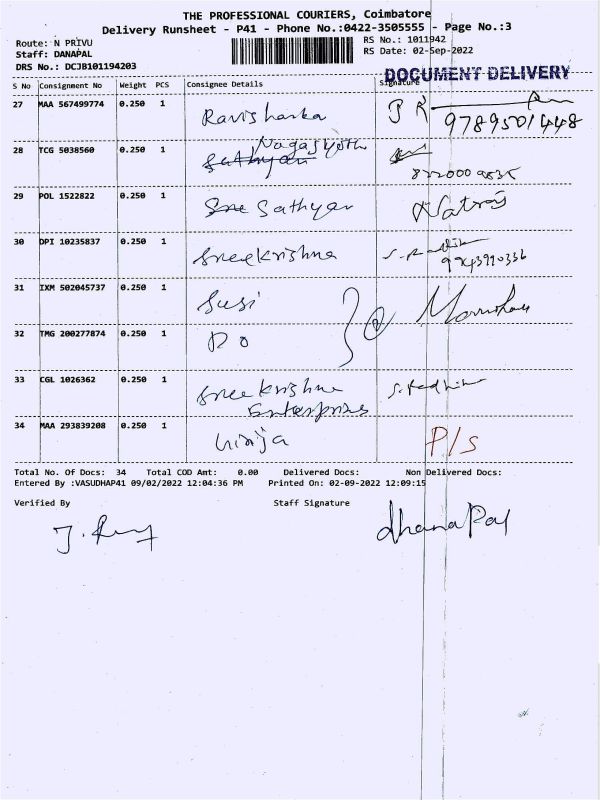 THE PROFESSIONAL COURIERS, Coimbatore
Delivery Runsheet - P41 - Phone No.:0422-3505555 - Page No.:3
Route: N PRIVU
RS No.: 1011942
Staff: DANAPAL
RS Date: 02-Sep-2022
DRS No.: DCJB101194203
DOCUMENT DELIVERY
S No Consignment No Weight PCS Consignee Details Signature
27 MAA 567499774 0.250 1 Ravishanka 9789501448
28 TCG 5038560 0.250 1 Sathyan Nagajyothi
29 POL 1522822 0.250 1 Sree Sathyan Natraj
30 DPI 10235837 0.250 1 Sreekrishna S. Radhika 9943990336
31 IXM 502045737 0.250 1 Susi
32 TMG 200277874 0.250 1 Do
33 CGL 1026362 0.250 1 Sreekrishna Enterprises S. Radhika
34 MAA 293839208 0.250 1 Girija P/S
Total No. Of Docs: 34 Total COD Amt: 0.00 Delivered Docs: Non Delivered Docs:
Entered By :VASUDHAP41 09/02/2022 12:04:36 PM Printed On: 02-09-2022 12:09:15
Verified By Staff Signature
dhanaPal